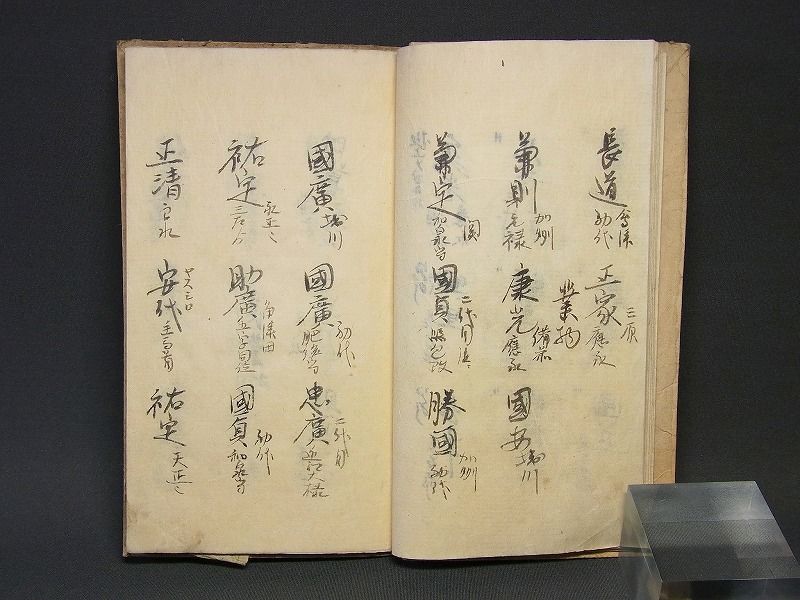 長道 会津 初代
正家 三原 應永
業物
兼則 加刕 元禄
康光 備前 應永
國安 堀川
兼定 関 和泉守
國貞 二代目 改
勝國 加刕 初代
國廣 堀川
國廣 初代 肥後守
忠廣 二代目 近江大掾
祐定 永正
助廣 角津田
國貞 初代 和泉守
正清 主水
安代 主馬首
祐定 天正